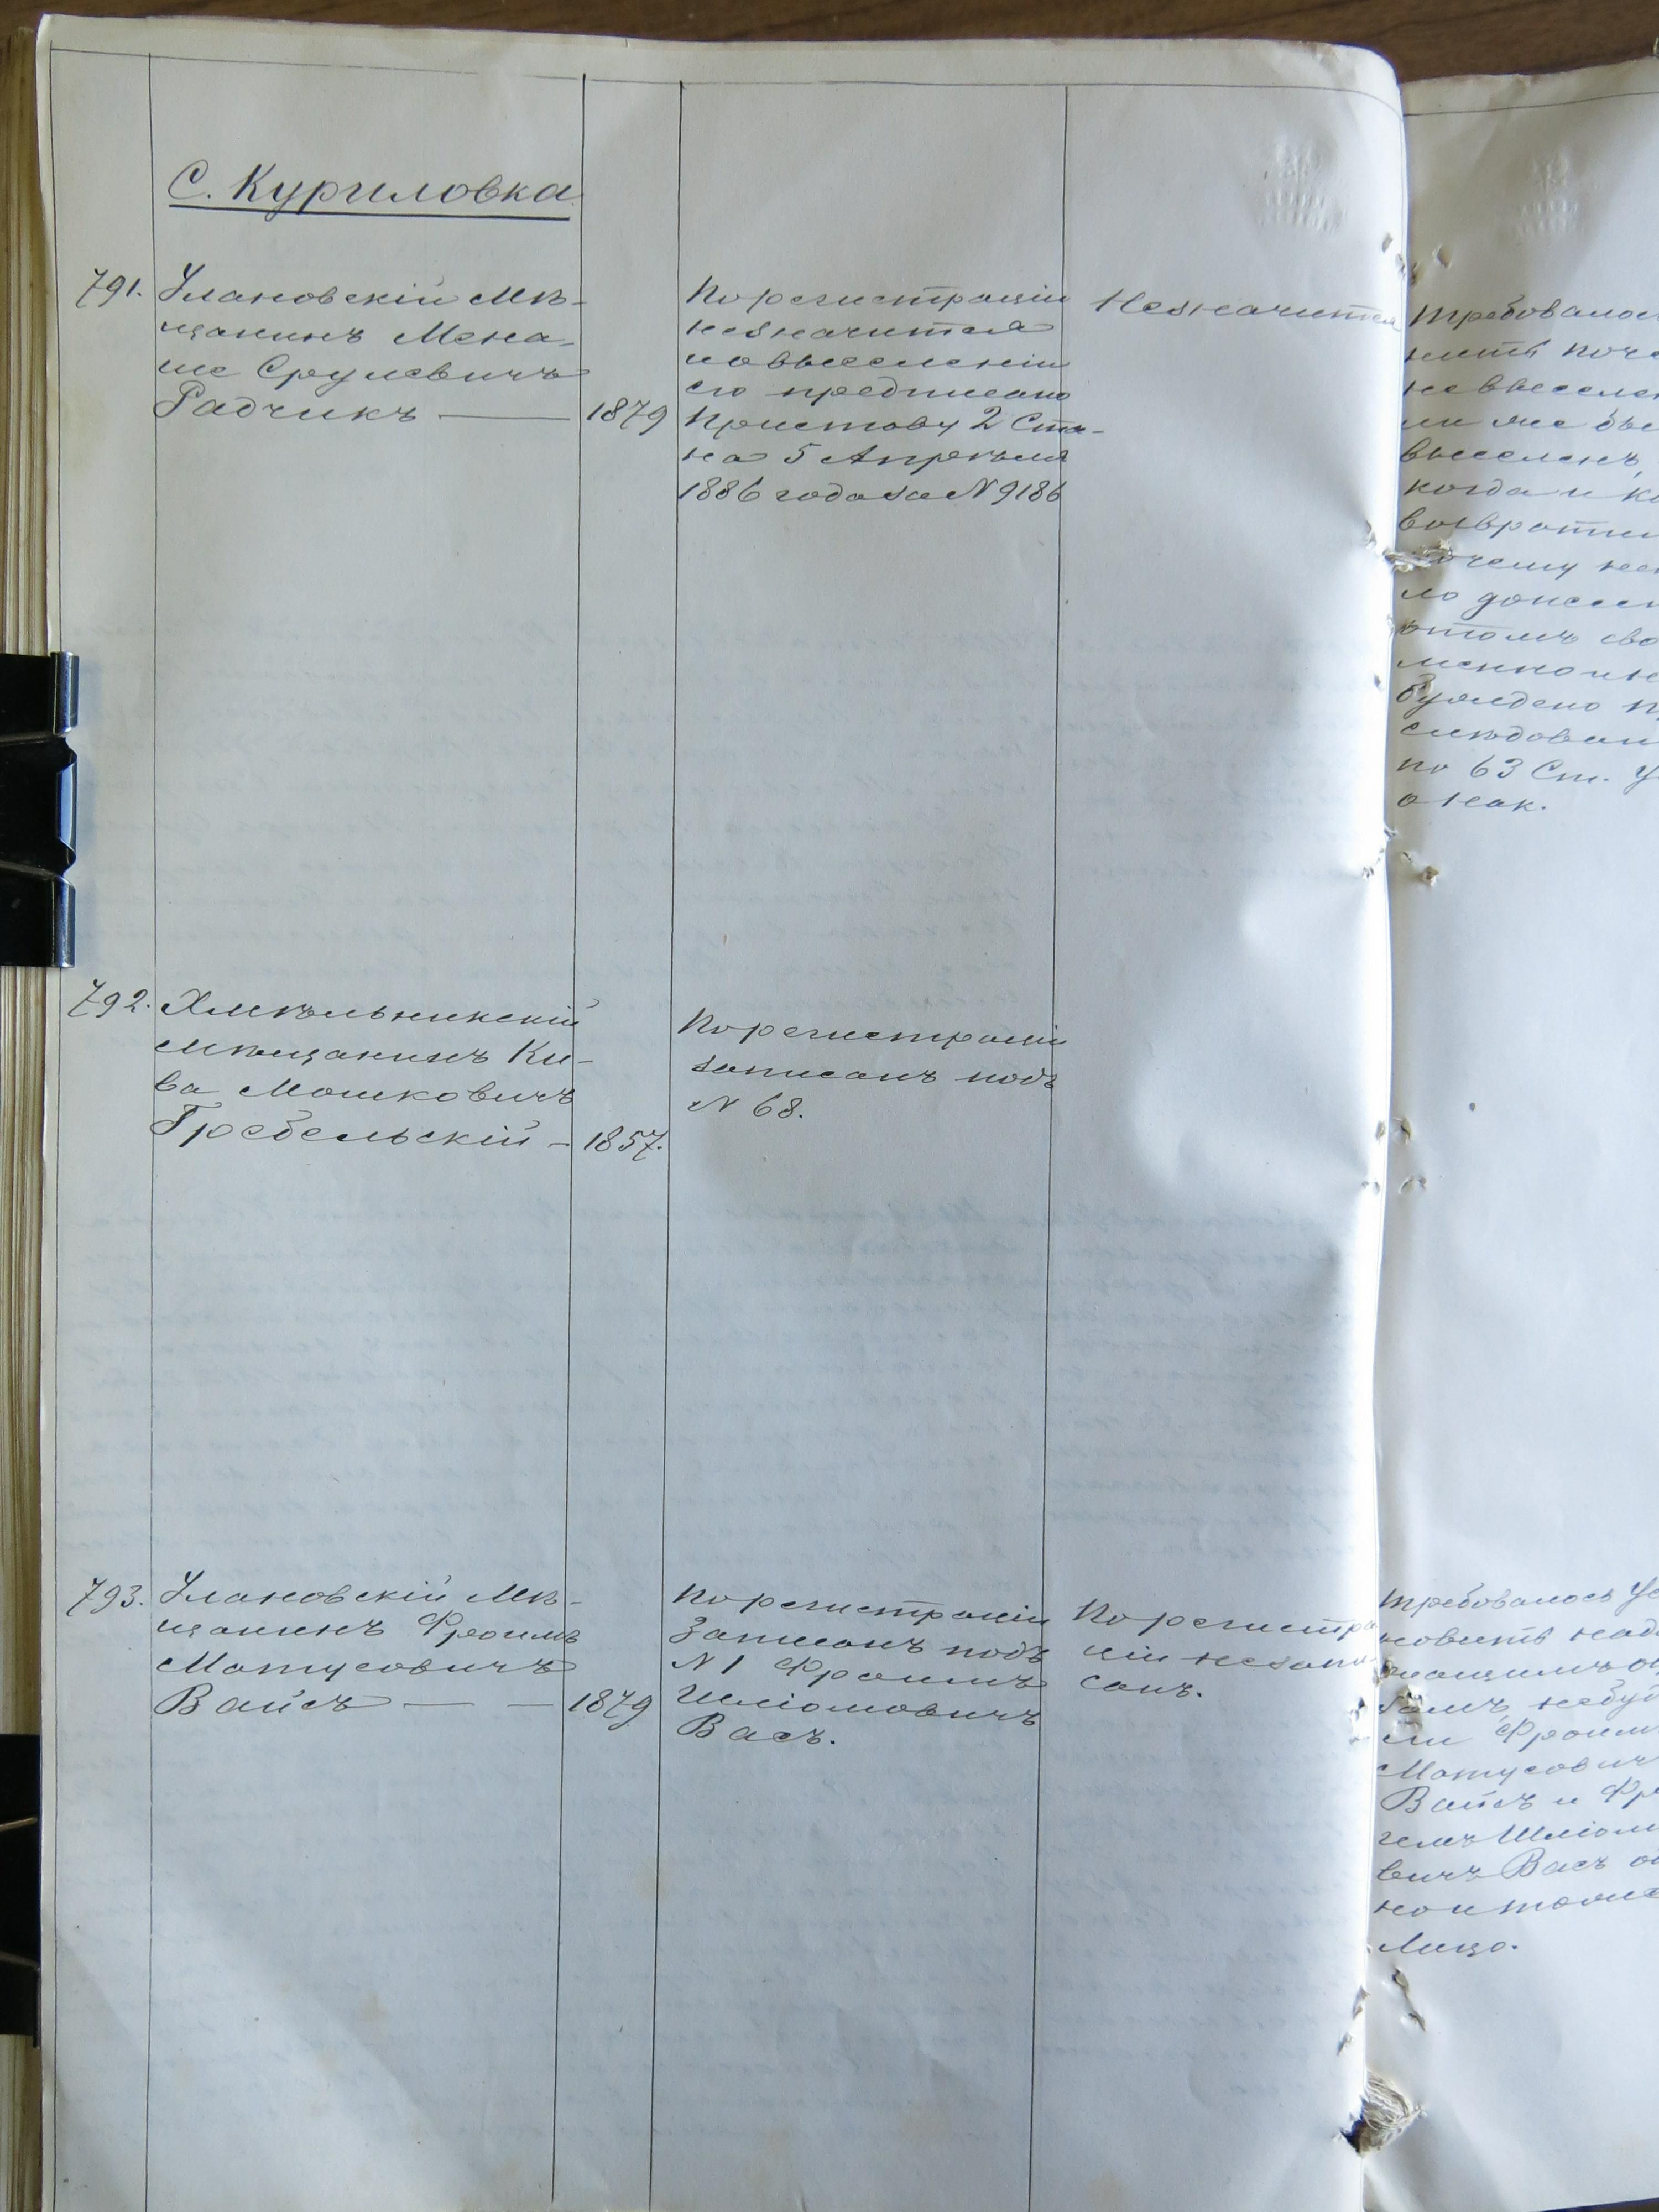 С. Куриловка
791.
Улановскій мѣ-
щанинъ Мена-
ше Срулевичъ
Радчикъ — 1879
По регистраціи
незначится
но выселеніи
его предписано
Приставу 2 Ста-
на 5 Апрѣля
1886 года за N 9186
Незначится
Требовалос
нить поче
не выселен
ли же бы
выселенъ,
когда и ко
возврати
почему не
ло донесен
отомъ сво
менно и не
буждено п
слѣдован
по 63 Ст. У
о нак.
792.
Хмѣльникскій
мѣщанинъ Ки-
ва Мошковичъ
Гребельскій — 1857.
По регистраціи
записанъ подъ
N 68.
793.
Улановскій мѣ-
щанинъ Фроимъ
Матусовичъ
Вайсъ — — 1879
По регистраціи
Записанъ подъ
N 1 Фроимъ
Шліомовичъ
Васъ.
По регистра
ціи не запи-
санъ.
Требовалось ус
новить над
жащимъ об
зомъ, небуд
ли Фроим
Матусович
Вайсъ и Фро
имъ Шліом
вичъ Васъ од
но и тоже
Лицо.